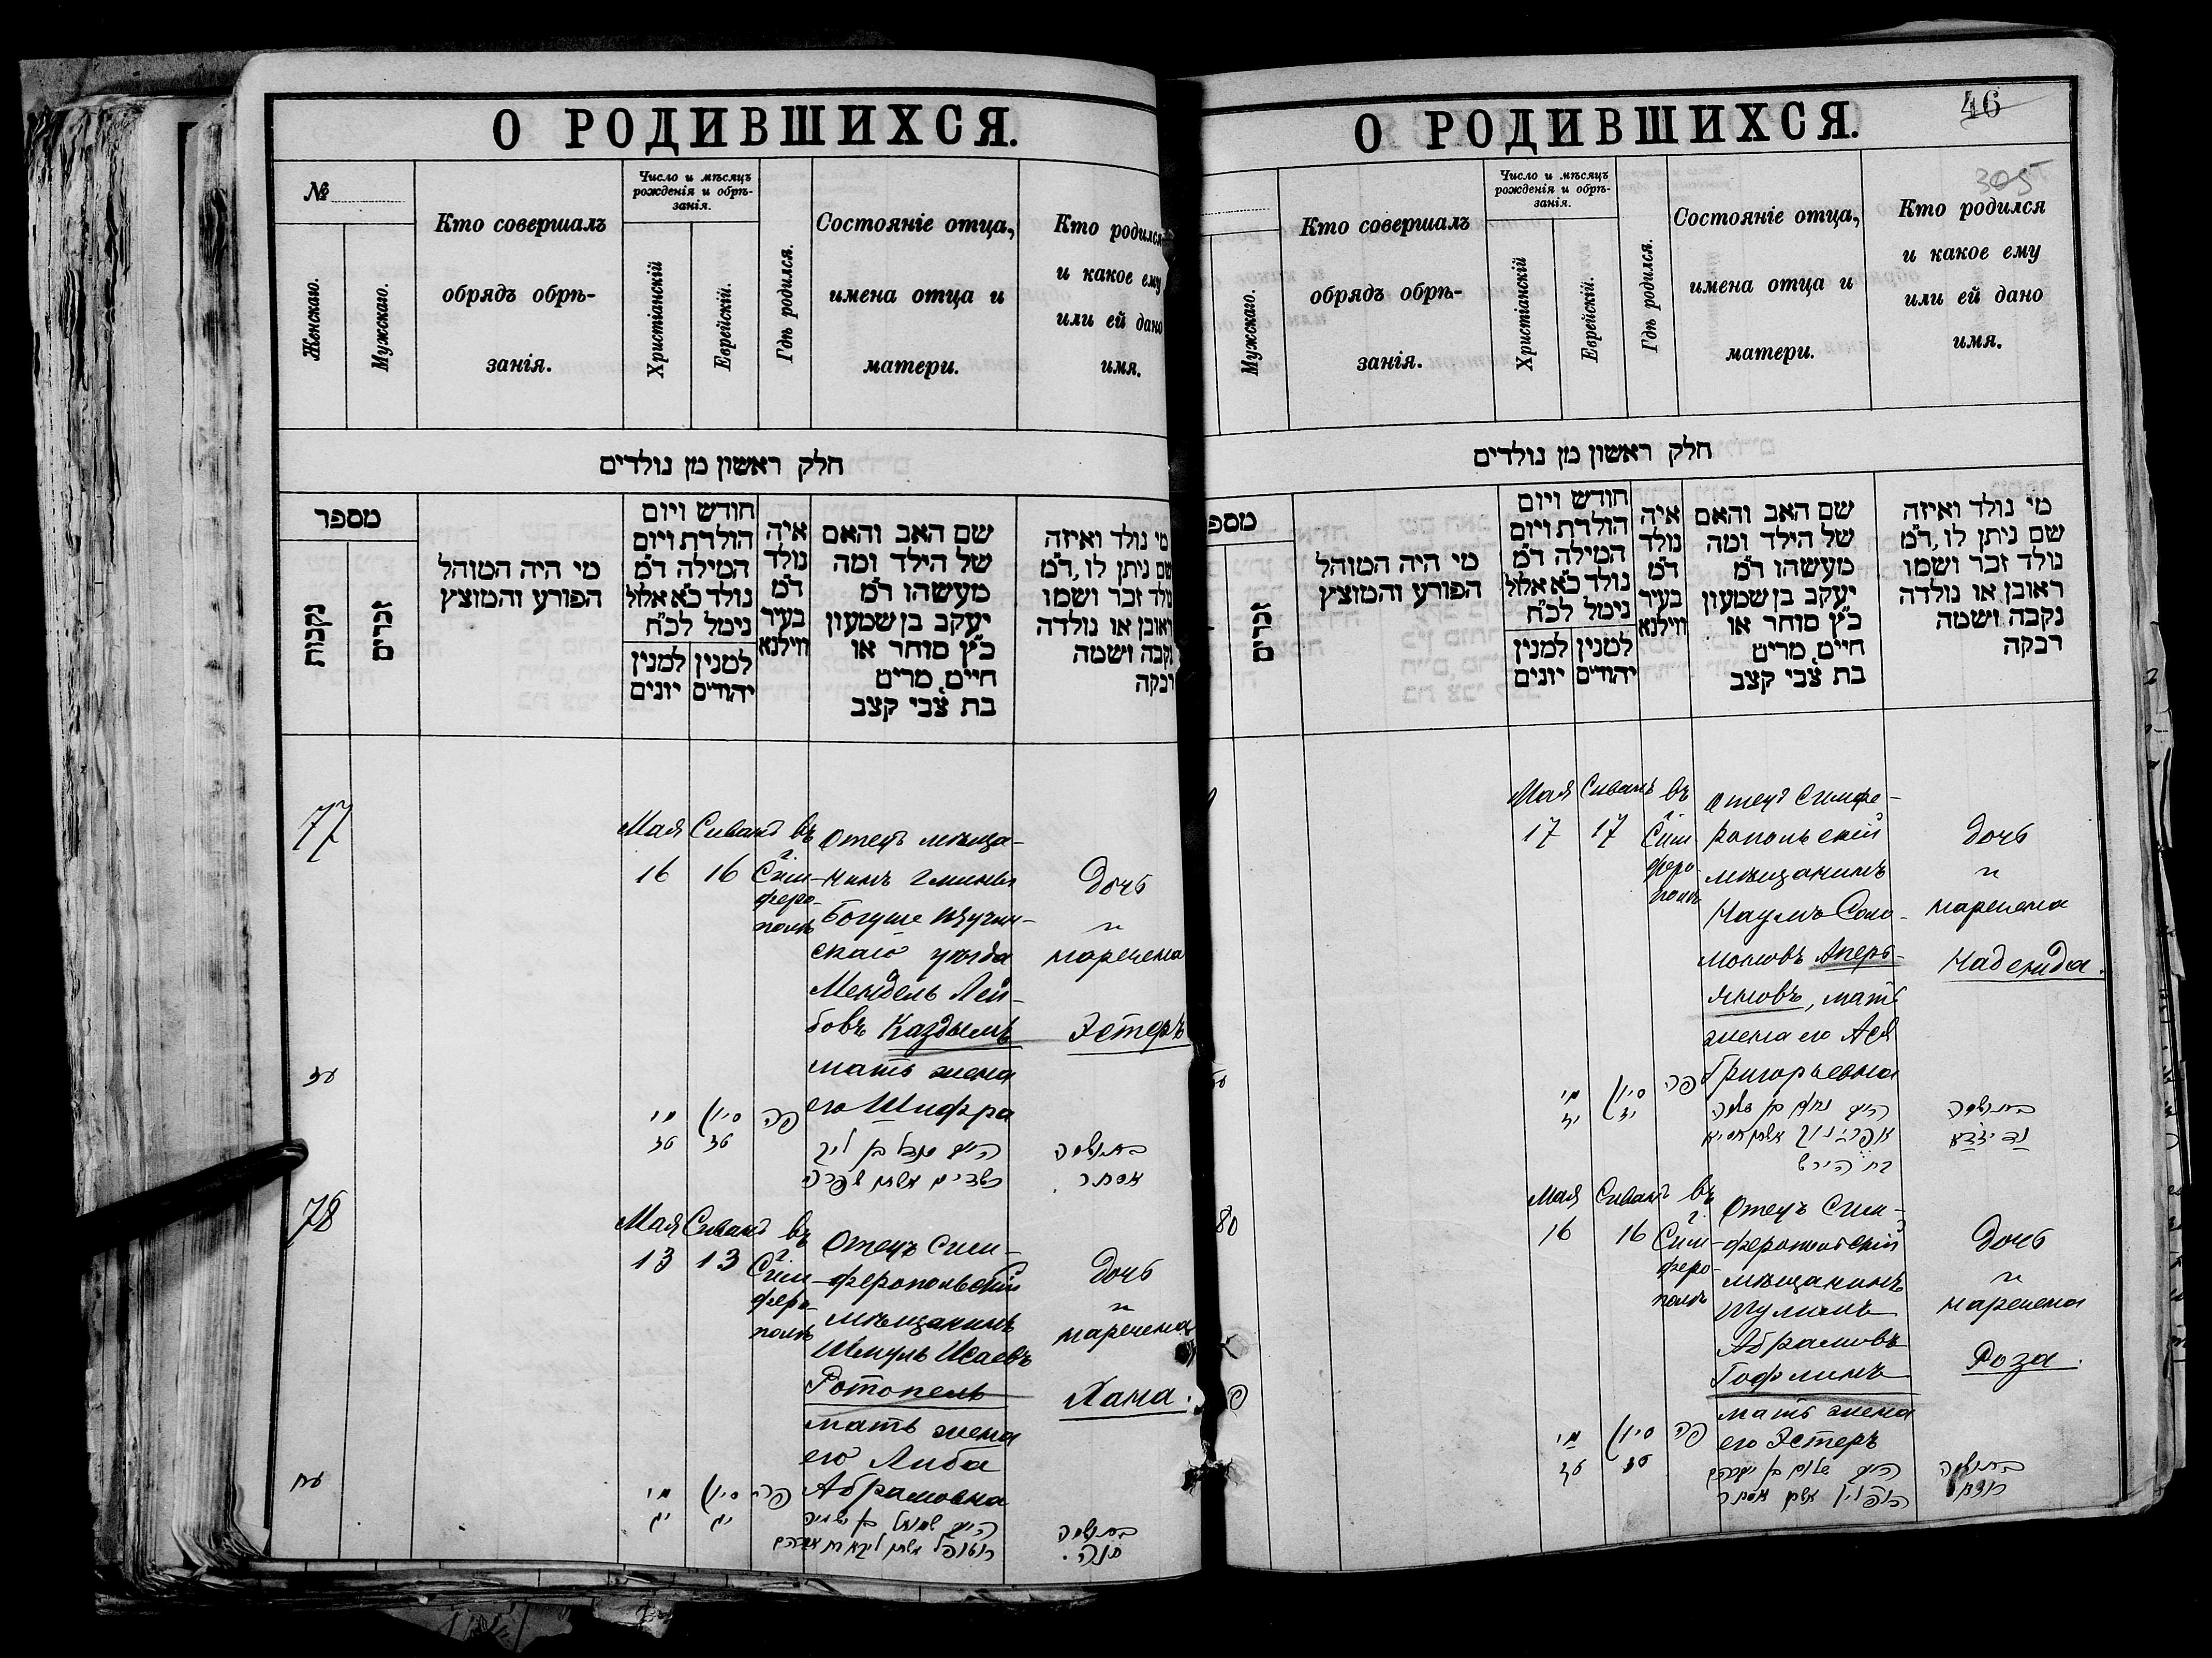 О РОДИВШИХСЯ.
№
Женскаго.
Мужскаго.
Кто совершалъ
обрядъ обрѣ-
занія.
Число и мѣсяцъ
рожденія и обрѣ-
занія.
Христіанскій
Еврейскій.
Гдѣ родился.
Состояніе отца,
имена отца и
матери.
Кто родился
и какое ему
или ей дано
имя.
חלק ראשון מן נולדים
מספר
נקבות
זכרים
מי היה המוהל
הפורע והמוצץ
חודש ויום
הולדת ויום
המילה ד״מ
נולד כ״א אלול
נימל לכ״ח
למנין
יונים
למנין
יהודים
איה
נולד
ד״מ
בעיר
ווילנא
שם האב והאם
של הילד ומה
מעשהו ד״מ
יעקב בן שמעון
כ״ץ סוחר או
חייט, מרים
בת צבי קצב
מי נולד ואיזה
שם ניתן לו, ד״מ
נולד זכר ושמו
ראובן או נולדה
נקבה ושמה
רבקה
77
Мая
16
Сиванъ
16
въ
г.
Сим-
феро-
полѣ
Отецъ мѣща-
нинъ гмины
Богуше Щучин-
скаго уѣзда
Мендель Лей-
бовъ Каздымъ
мать жена
его Шифра
Дочь
и
наречена
Эстеръ
עז
מיי
טז
סיון
טז
פה
אסתר
78
Мая
13
Сиванъ
13
въ
г.
Сим-
феро-
полѣ
Отецъ Сим-
феропольскій
мѣщанинъ
Шмуль Исаевъ
Ротопель
мать жена
его Либа
Абрамовна
Дочь
и
наречена
Хана.
עח
מיי
יג
סיון
יג
פה
חנה.
О РОДИВШИХСЯ.
46
305
Мужскаго.
Кто совершалъ
обрядъ обрѣ-
занія.
Число и мѣсяцъ
рожденія и обрѣ-
занія.
Христіанскій
Еврейскій.
Гдѣ родился.
Состояніе отца,
имена отца и
матери.
Кто родился
и какое ему
или ей дано
имя.
חלק ראשון מן נולדים
מספ
זכרים
מי היה המוהל
הפורע והמוצץ
חודש ויום
הולדת ויום
המילה ד״מ
נולד כ״א אלול
נימל לכ״ח
למנין
יונים
למנין
יהודים
איה
נולד
ד״מ
בעיר
ווילנא
שם האב והאם
של הילד ומה
מעשהו ד״מ
יעקב בן שמעון
כ״ץ סוחר או
חייט, מרים
בת צבי קצב
מי נולד ואיזה
שם ניתן לו, ד״מ
נולד זכר ושמו
ראובן או נולדה
נקבה ושמה
רבקה
Мая
17
Сиванъ
17
въ
г.
Сим-
феро-
полѣ
Отецъ Симфе-
ропольскій
мѣщанинъ
Наумъ Соло-
моновъ Аперь-
яновъ, мать
жена его Ася
Григорьевна
Дочь
и
наречена
Надежда.
מיי
יז
סיון
יז
פה
80
Мая
16
Сиванъ
16
въ
г.
Сим-
феро-
полѣ
Отецъ Сим-
феропольскій
мѣщанинъ
Шулимъ
Абрамовъ
Гофлинъ
мать жена
его Эстеръ
Дочь
и
наречена
Роза.
מיי
טז
סיון
טז
פה